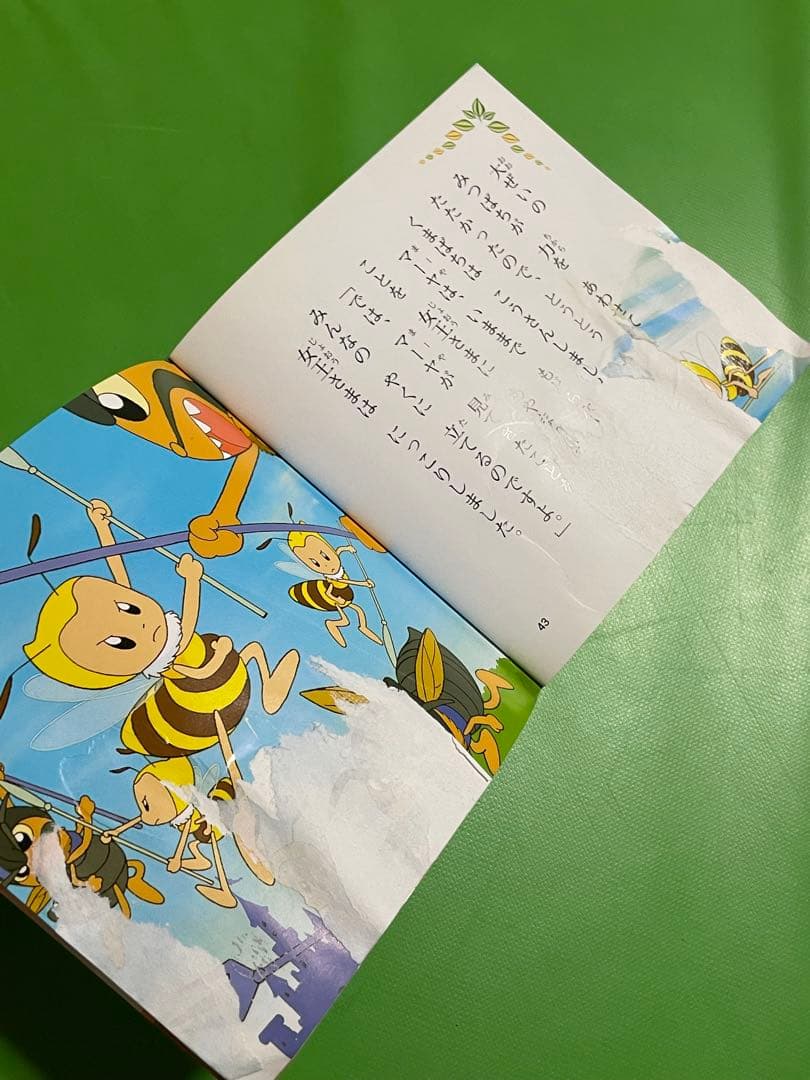 大ぜいの 力を あわせて
みつばちが
たたかったので、 とうとう
くまばちは こうさんしまし
マーヤは、 いままで
ことを 女王さまに
「では、 マーヤが 見て
みんなの やくに 立てるのですよ。」
女王さまは にっこりしました。
43